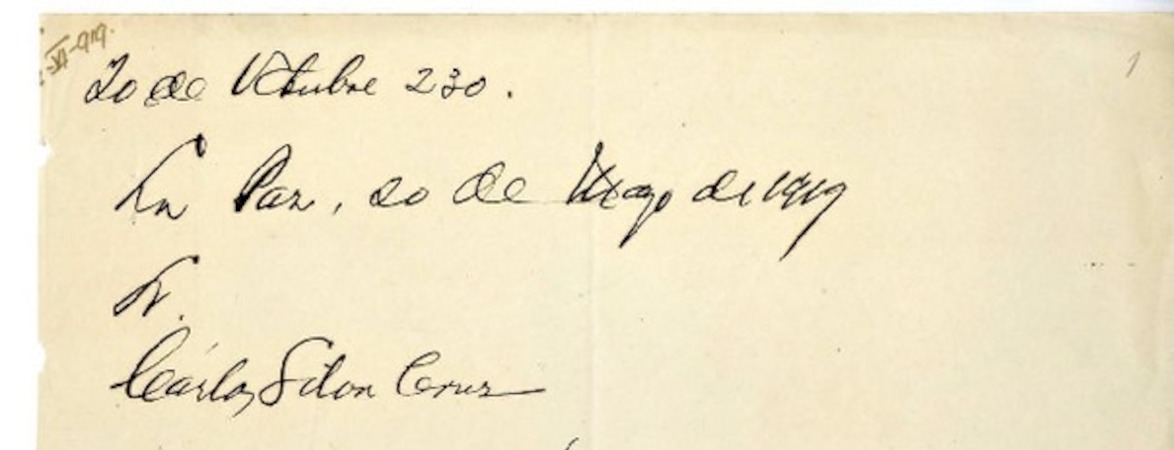 VI-919.
1
20 de Octubre 230.
La Paz, 20 de Mayo de 1919
Sr.
Cárlos Silva Cruz